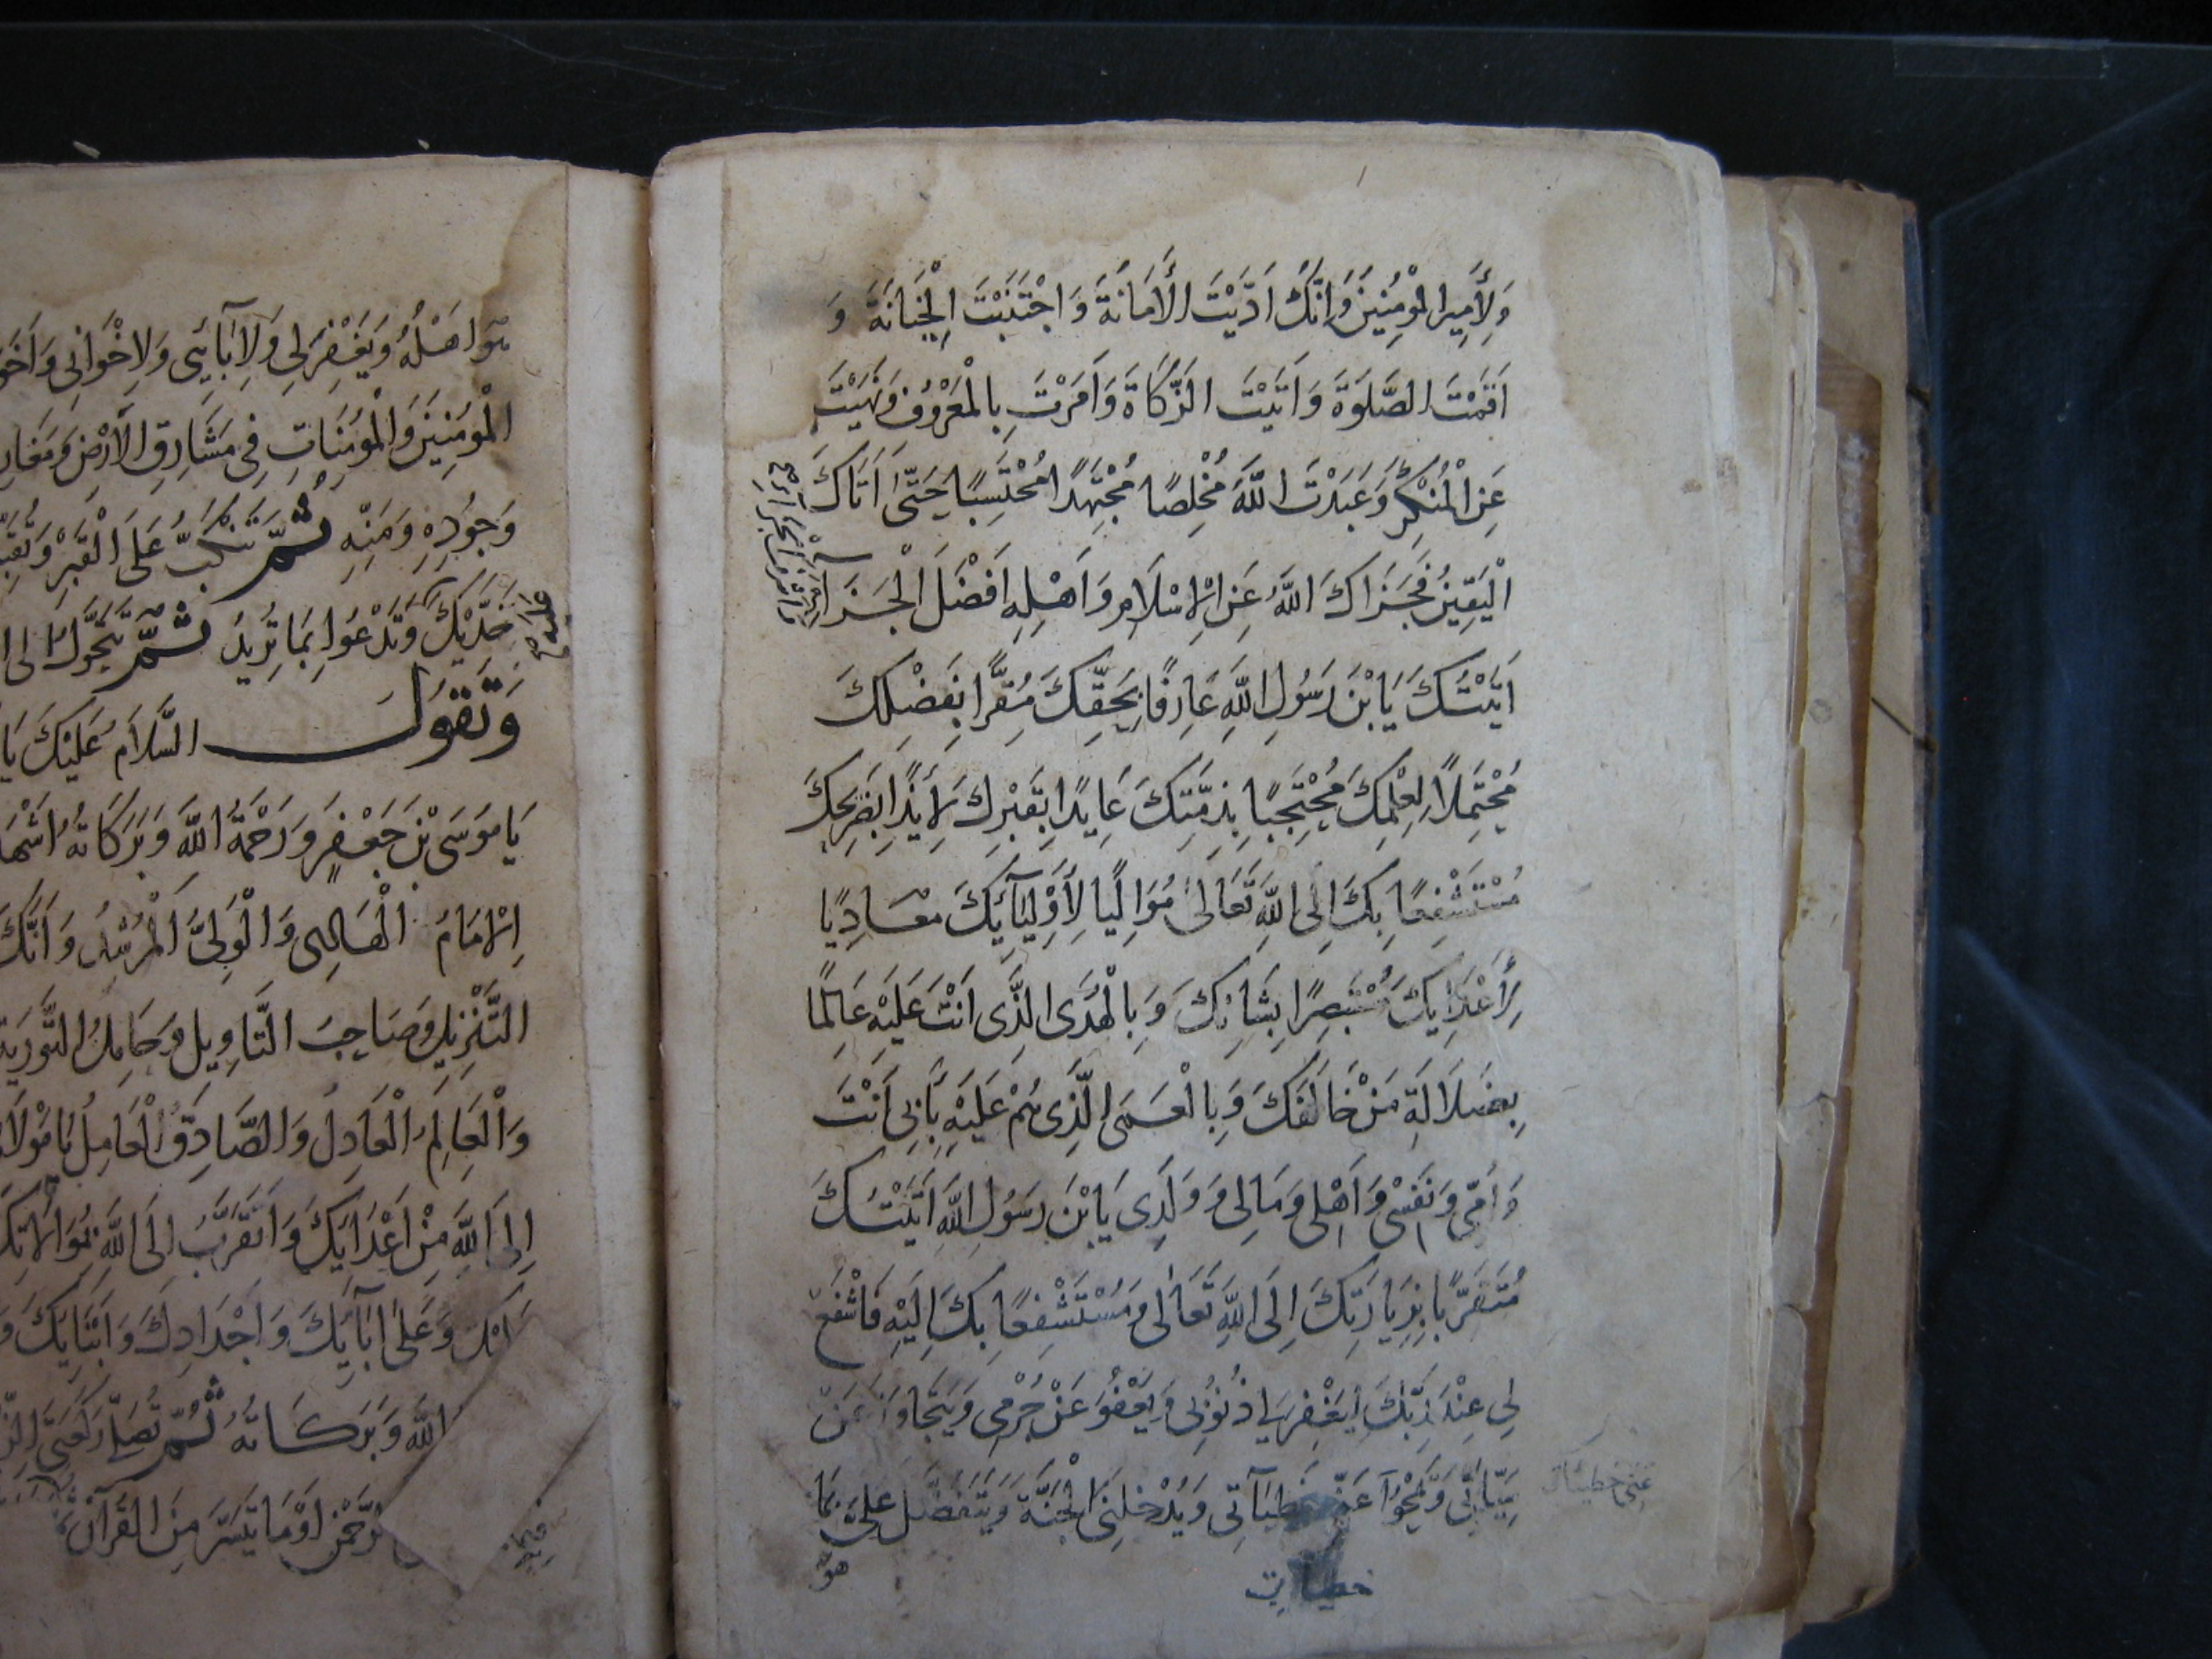 وَلِأَمِيرِ الْمُؤْمِنِينَ وَاَنَّكَ اَدَّيْتَ الْأَمَانَةَ وَاجْتَنَبْتَ الْخِيَانَةَ وَ
اَقَمْتَ الصَّلَوةَ وَاَتَيْتَ الزَّكَاةَ وَاَمَرْتَ بِالْمَعْرُوفِ وَنَهَيْتَ
عَنِ الْمُنْكَرِ وَعَبَدْتَ اللَّهَ مُخْلِصًا مُجْتَهِدًا مُحْتَسِبًا حَتّىٰ اَتَاكَ
الْيَقِينُ فَجَزَاكَ اللَّهُ عَنِ الْاِسْلَامِ وَاَهْلِهِ اَفْضَلَ الْجَزَآءِ
اَتَيْتُكَ يَا بْنَ رَسُولِ اللَّهِ عَارِفًا بِحَقِّكَ مُقِرًّا بِفَضْلِكَ
مُحْتَمِلاً لِعِلْمِكَ مُحْتَجِبًا بِذِمَّتِكَ عَايِذًا بِقَبْرِكَ لَايِذًا بِضَرِيحِكَ
مُسْتَشْفِعًا بِكَ اِلَى اللَّهِ تَعَالىٰ مُوَالِيًا لِأَوْلِيَآئِكَ مُعَادِيًا
لِأَعْدَايِكَ مُسْتَبْصِرًا بِشَانِكَ وَبِالْهُدَى الَّذِى اَنْتَ عَلَيْهِ عَالِمًا
بِضَلَالَةِ مَنْ خَالَفَكَ وَبِالْعَمَى الَّذِى هُمْ عَلَيْهِ بِاَبِى اَنْتَ
وَاُمِّى وَنَفْسِى وَاَهْلِى وَمَالِى وَوَلَدِى يَا بْنَ رَسُولِ اللَّهِ اَتَيْتُكَ
مُتَقَرِّبًا بِزِيَارَتِكَ اِلَى اللَّهِ تَعَالىٰ وَمُسْتَشْفِعًا بِكَ اِلَيْهِ فَاشْفَعْ
لِى عِنْدَ رَبِّكَ لِيَغْفِرَ لِى ذُنُوبِى وَيَعْفُوَ عَنْ جُرْمِى وَيَتَجَاوَزَ عَنْ
سَيِّئَاتِى وَيَمْحُوَا عَنِّى خَطِيئَاتِى وَيُدْخِلَنِى الْجَنَّةَ وَيَتَفَضَّلَ عَلَىَّ بِمَا
هو
هُوَ اَهْلُهُ وَيَغْفِرَ لِى وَلِاٰبَآئِى وَلِاِخْوَانِى
الْمُؤْمِنِينَ وَالْمُؤْمِنَاتِ فِى مَشَارِقِ الْأَرْضِ
وَجُودِهِ وَمَنِّهِ ثُمَّ تَنْكَبُّ عَلَى الْقَبْرِ
خَدَّيْكَ وَتَدْعُوا بِمَا تُرِيدُ ثُمَّ تَحَوَّلْ
وَتَقُولُ السَّلَامُ عَلَيْكَ يَا
يَا مُوسَى بْنَ جَعْفَرٍ وَرَحْمَةُ اللَّهِ وَبَرَكَاتُهُ
الْاِمَامُ الْهَادِى وَالْوَلِىُّ الْمُرْشِدُ وَاَنَّكَ
التَّنْزِيلِ وَصَاحِبُ التَّاوِيلِ وَحَامِلُ التَّوْرَيةِ
وَالْعَالِمُ الْعَادِلُ وَالصَّادِقُ الْعَامِلُ يَا مَوْلَا
اِلَى اللَّهِ مِنْ اَعْدَايِكَ وَاَتَقَرَّبُ اِلَى اللَّهِ بِمُوَالَاتِكَ
وَعَلىٰ اٰبَآئِكَ وَاَجْدَادِكَ وَاَبْنَايِكَ
اللَّهِ وَبَرَكَاتُهُ ثُمَّ تُصَلِّى رَكْعَتَىِ
اَوْ مَا تَيَسَّرَ مِنَ الْقُرْآنِ